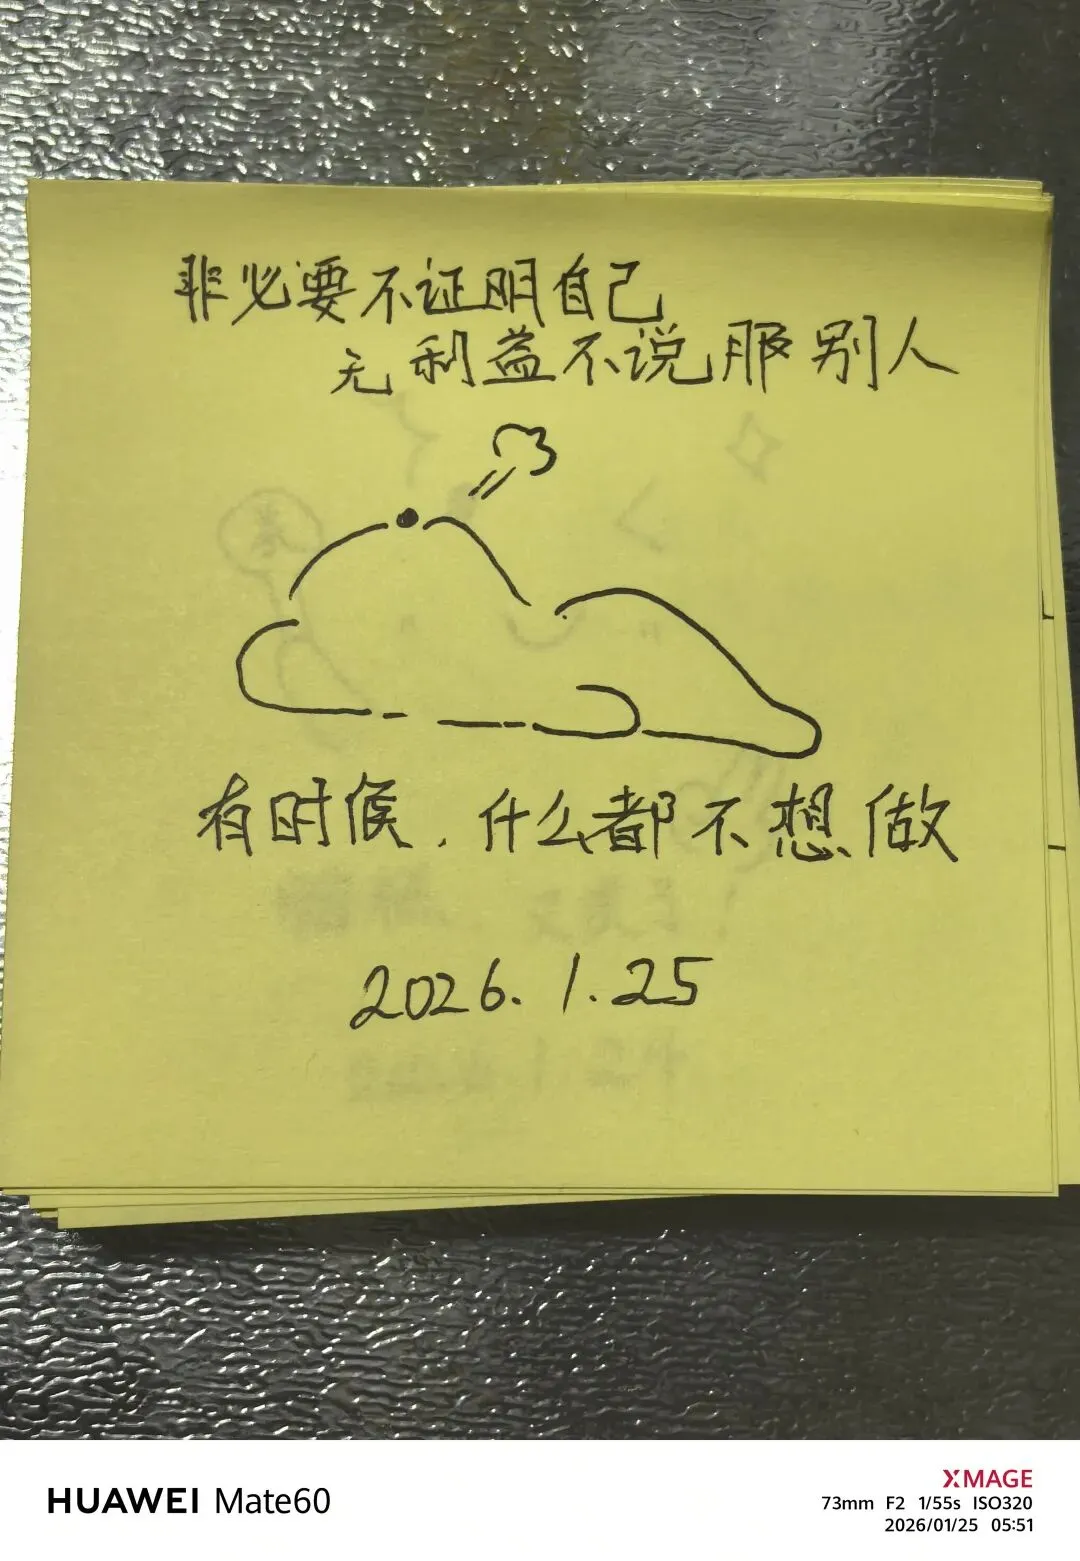 非必要不证明自己
无利益不说服别人
有时候，什么都不想做
2026.1.25
HUAWEI Mate60
XMAGE
73mm F2 1/55s ISO320
2026/01/25 05:51